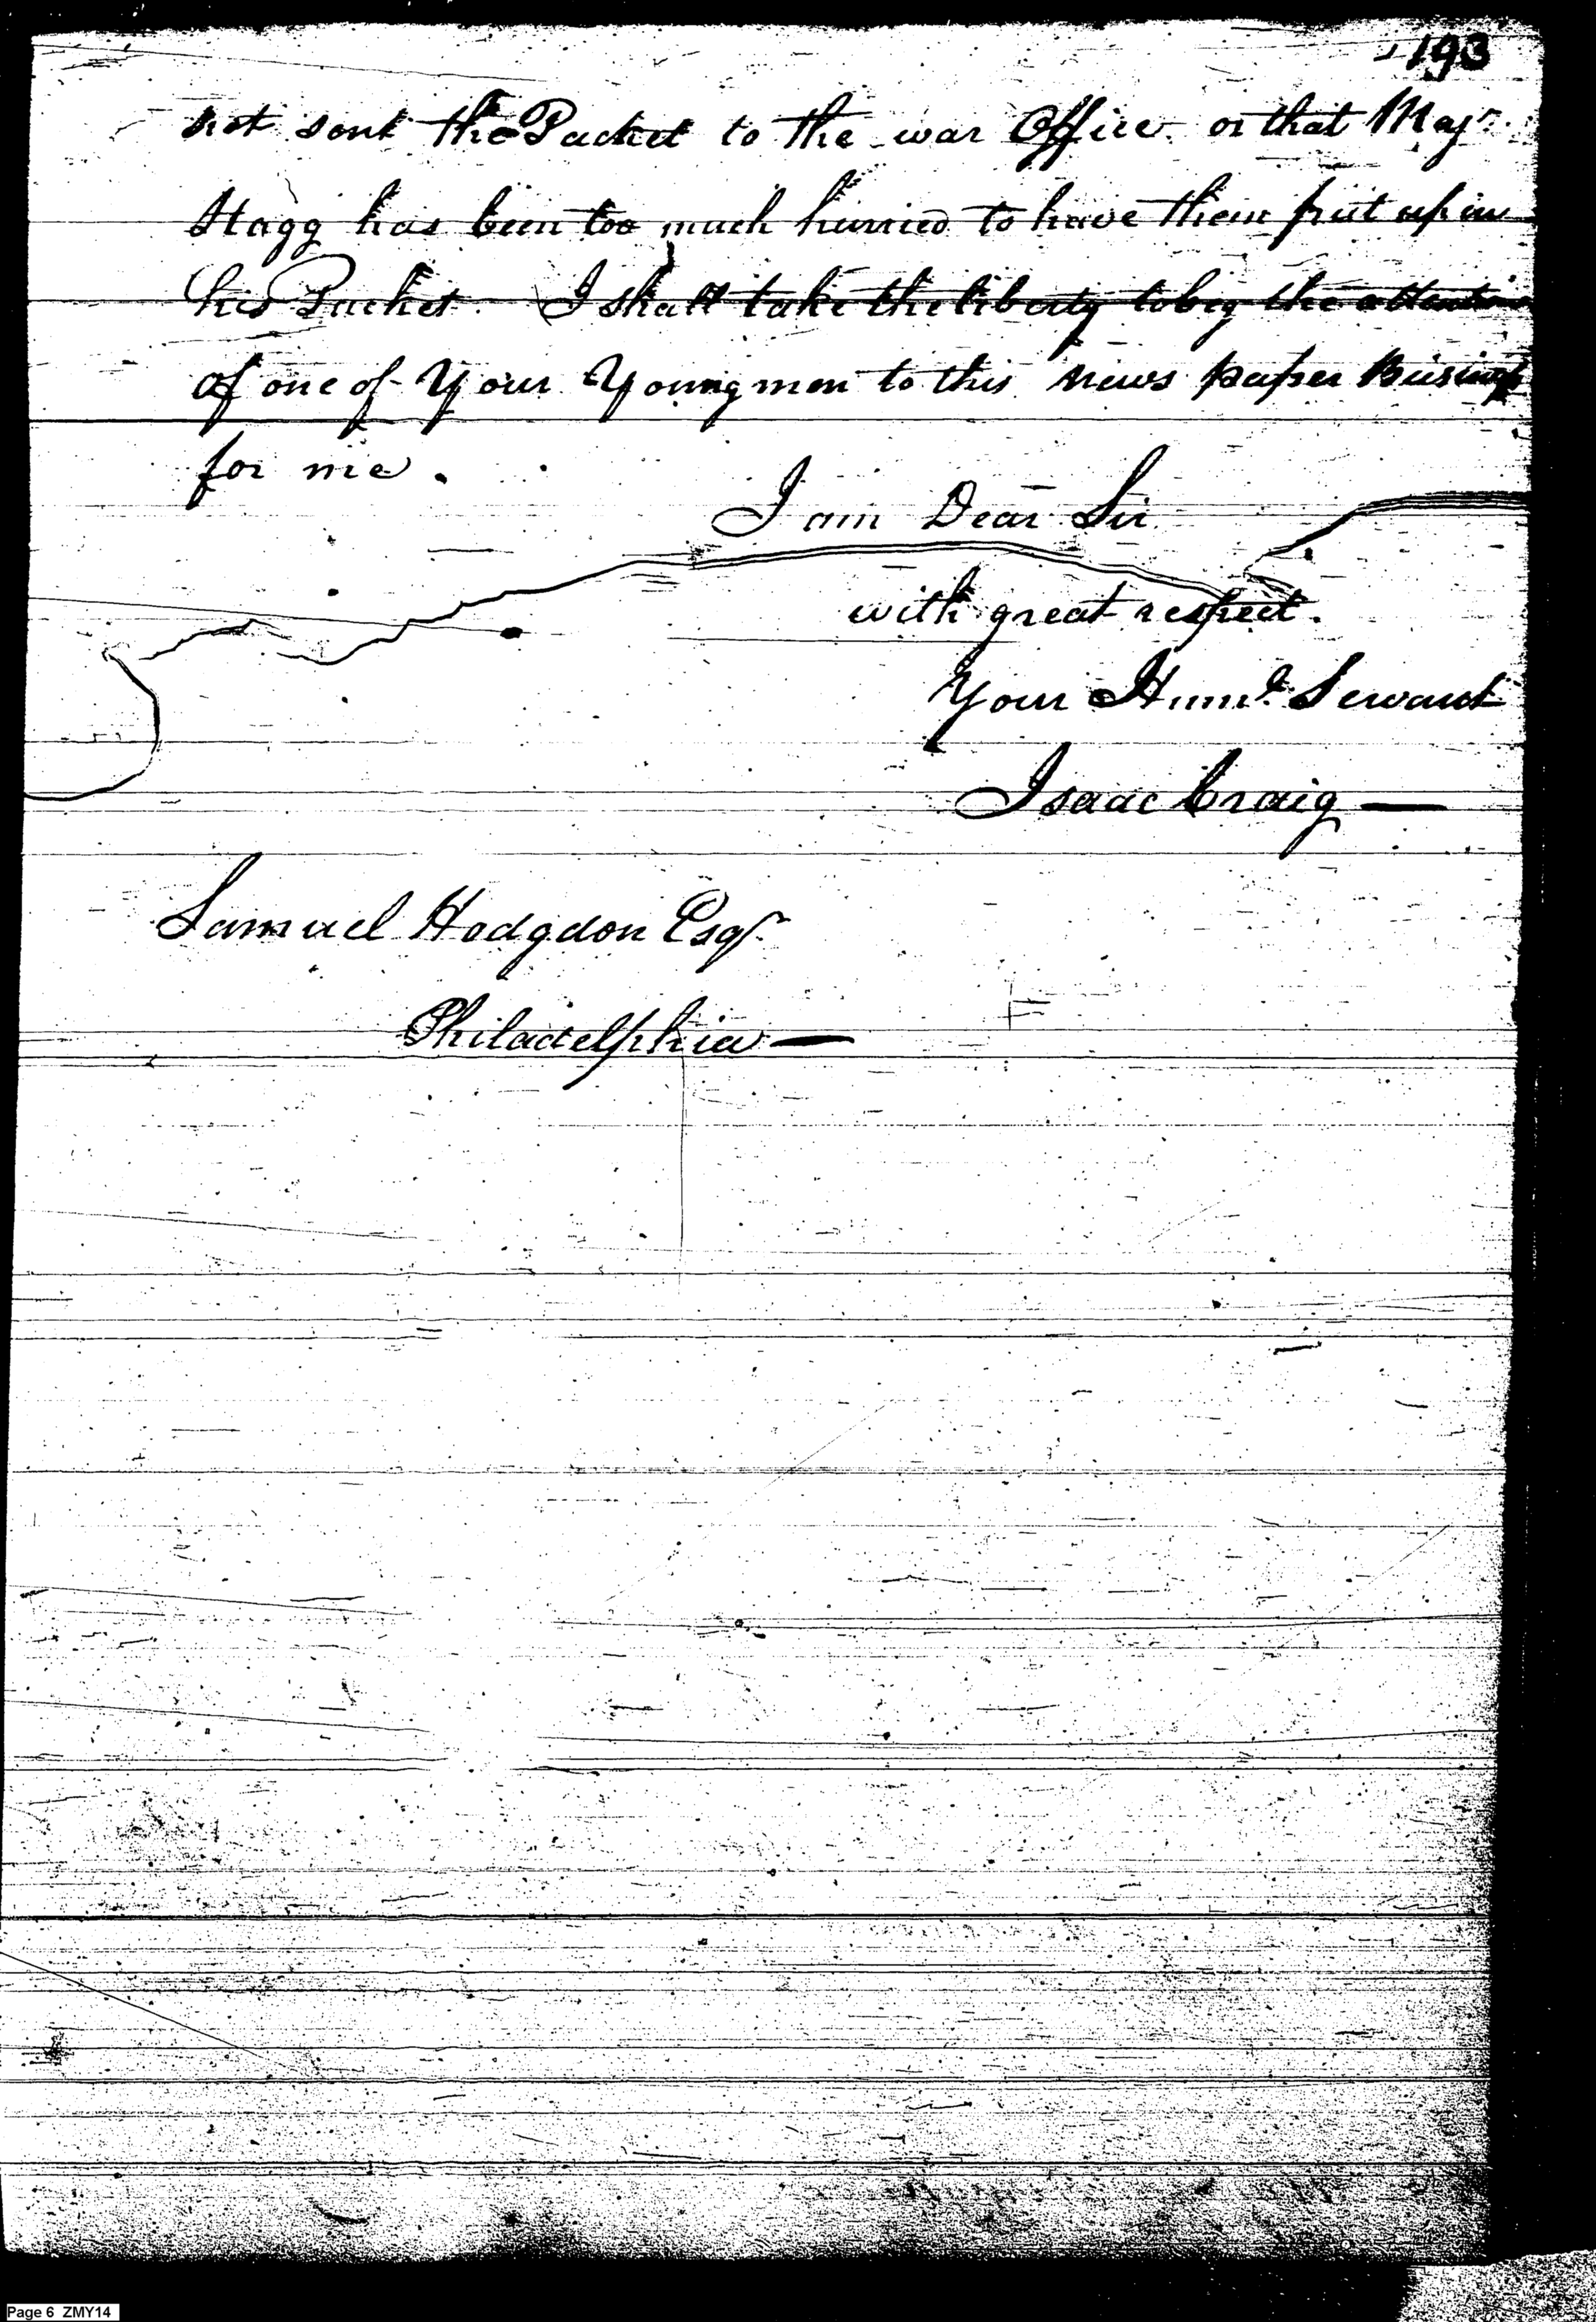 193
not sent the Packet to the war Office or that Majr.
Stagg has been too much hurried to have them put up in
his Packet. I shall take the liberty to beg the attention
of one of Your Young men to this news paper Business
for me.
I am Dear Sir
with great respect.
Your Humle. Servant
Isaac Craig —
Samuel Hodgdon Esqr.
Philadelphia —
Page 6 ZMY14